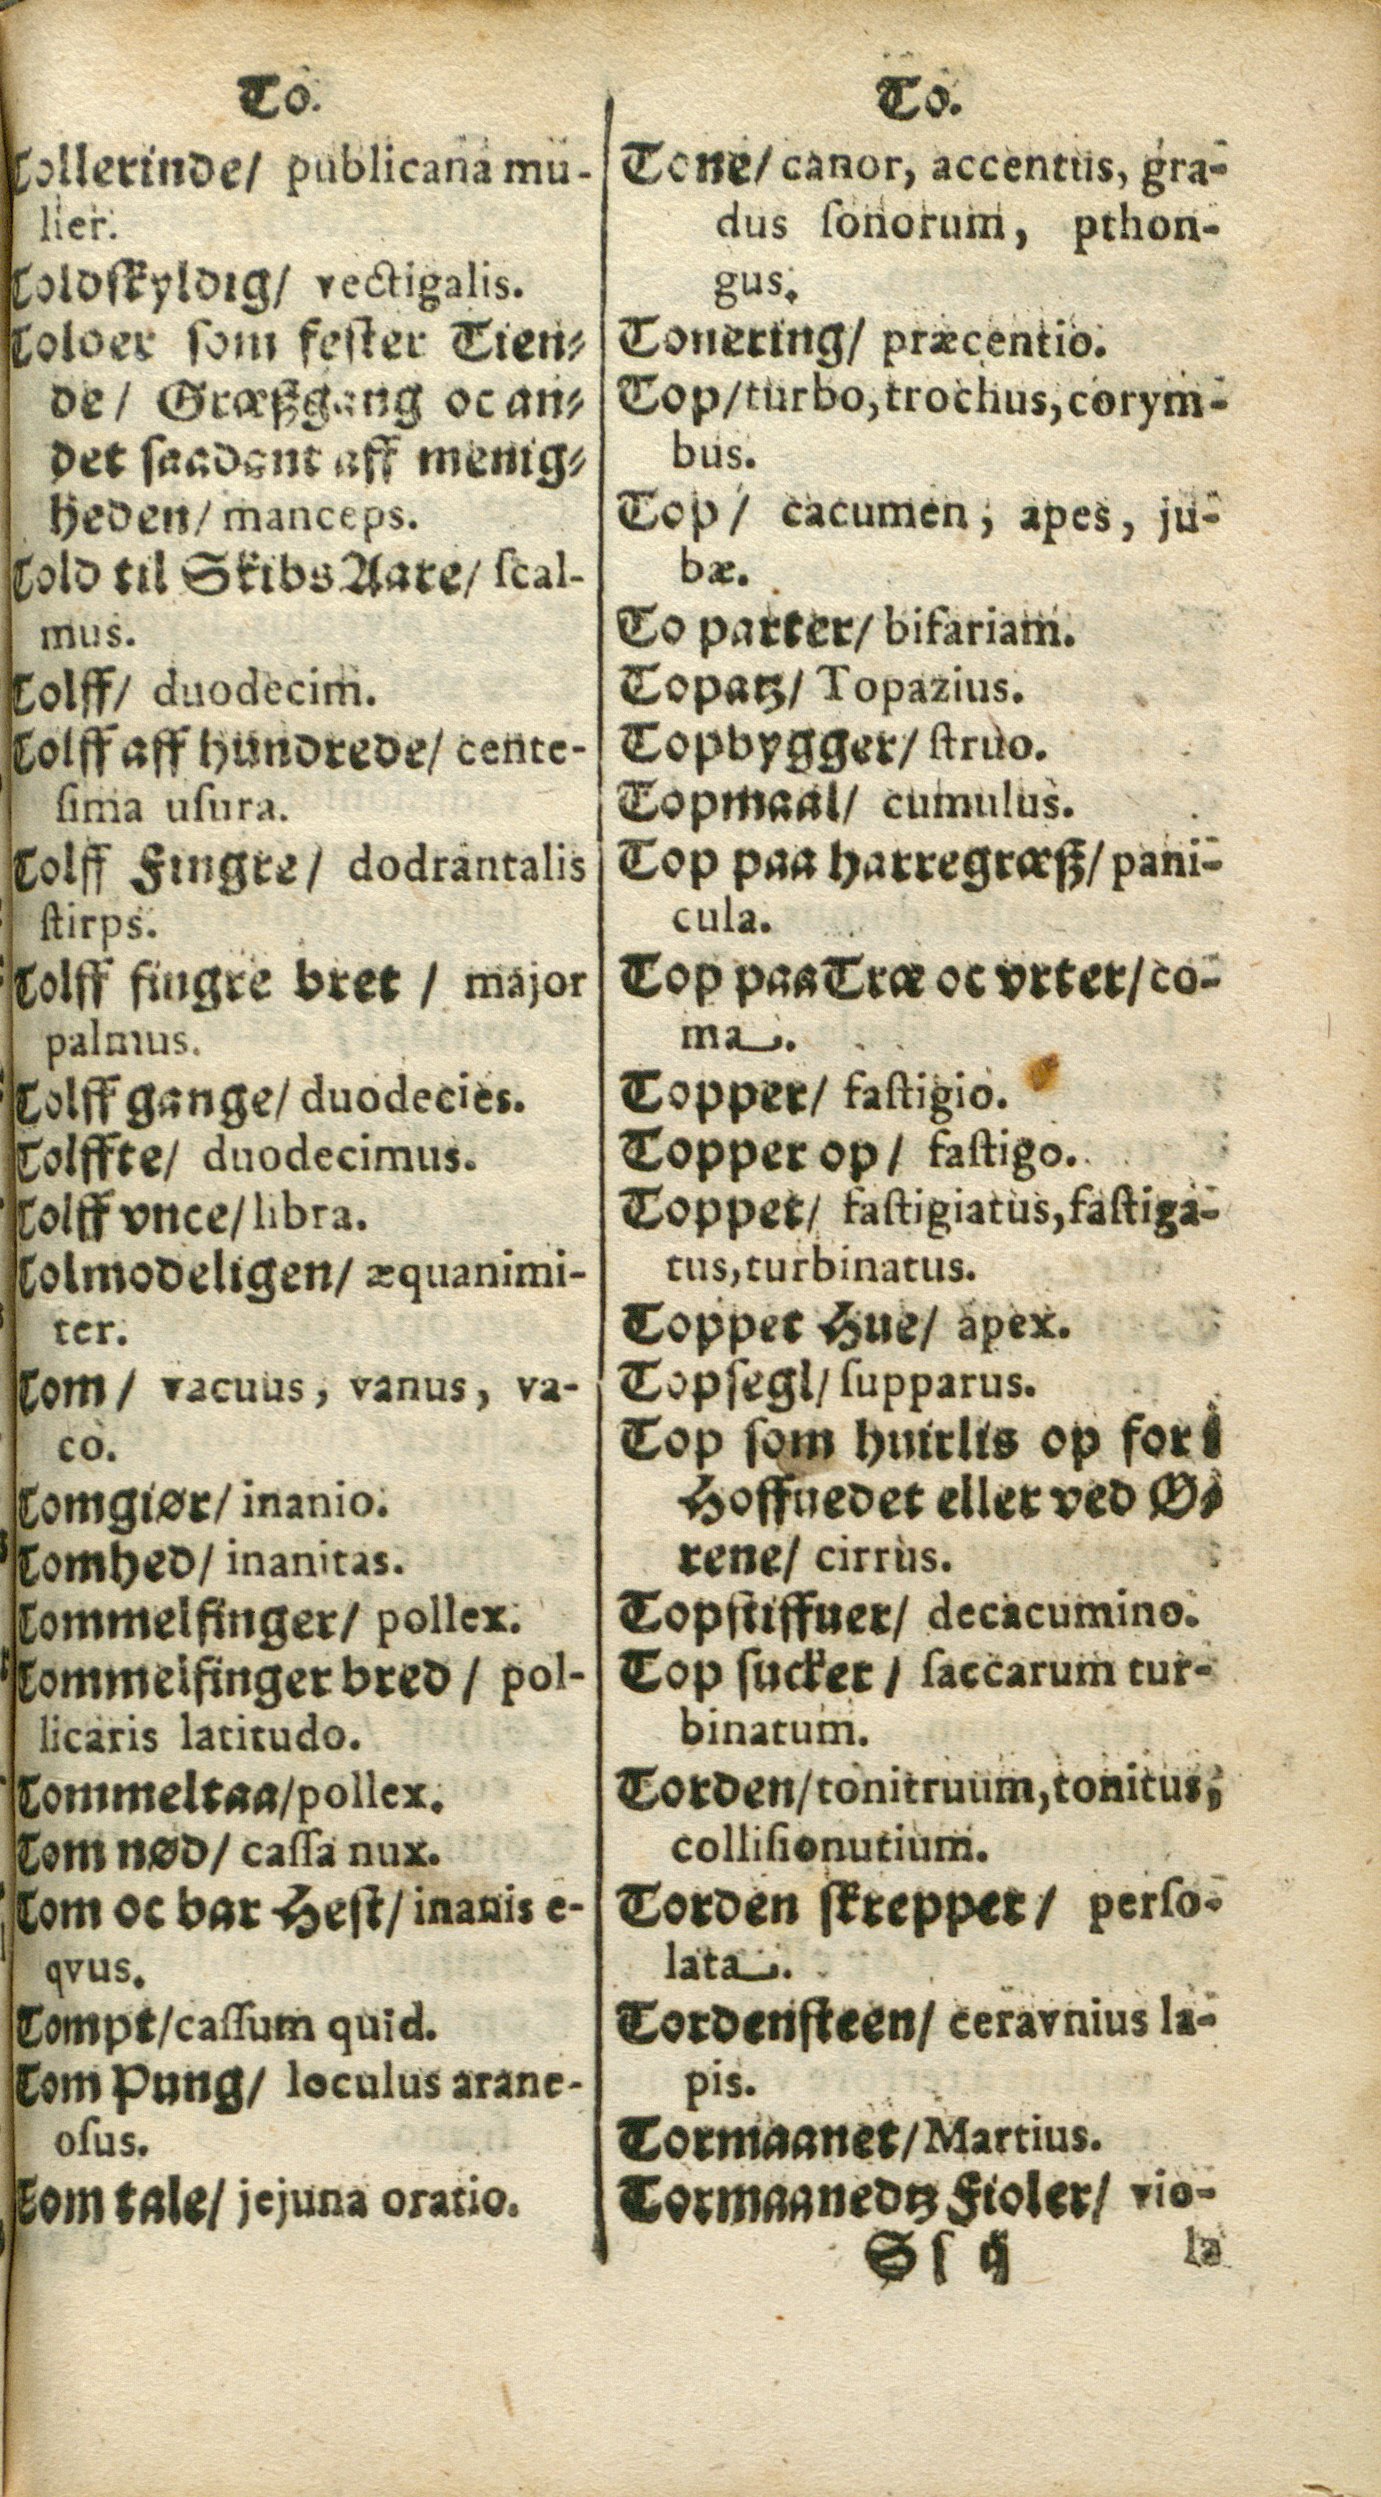 To.
Tollerinde/ publicana mu-
lier.
Toldſkyldig/ vectigalis.
Tolder ſom feſter Tien-
de/ Græßgang oc an-
det ſaadant aff menig-
heden/ manceps.
Told til Skibs Aare/ ſcal-
mus.
Tolff/ duodecim.
Tolff aff hundrede/ cente-
ſima uſura.
Tolff Fingre/ dodrantalis
ſtirps.
Tolff fingre bret / major
palmus.
Tolff gange/ duodecies.
Tolffte/ duodecimus.
Tolff vnce/ libra.
Tolmodeligen/ æquanimi-
ter.
Tom / vacuus, vanus, va-
cò.
Tomgiør/ inanio.
Tomhed/ inanitas.
Tommelfinger/ pollex.
Tommelfinger bred / pol-
licaris latitudo.
Tommeltaa/pollex.
Tom nød/ caſſa nux.
Tom oc bar Heſt/ inanis e-
qvus.
Tompt/caſſum quid.
Tom Pung/ loculus arane-
oſus.
Tom tale/ jejuna oratio.
To.
Tone/ canor, accentus, gra-
dus ſonorum, pthon-
gus.
Tonering/ præcentio.
Top/turbo, trochus, corym-
bus.
Top / cacumen, apes, ju-
bæ.
To parter/ bifariam.
Topatz/ Topazius.
Topbygger/ ſtruo.
Topmaal/ cumulus.
Top paa harregræß/ pani-
cula.
Top paa Træ oc vrter/ co-
ma.
Topper/ faſtigio.
Topper op / faſtigo.
Toppet/ faſtigiatus, faſtiga-
tus, turbinatus.
Toppet Hue/ apex.
Topſegl/ ſupparus.
Top ſom huirlis op for i
Hoffuedet eller ved Ø-
rene/ cirrus.
Topſtiffuer/ decacumino.
Top ſucker / ſaccarum tur-
binatum.
Torden/tonitruum, tonitus,
colliſionutium.
Torden ſkrepper/ perſo-
lata.
Tordenſteen/ ceravnius la-
pis.
Tormaanet/Martius.
Tormaanedtz Fioler/ vio-
Sſ ij
la